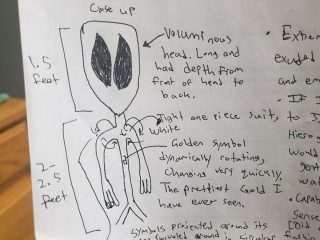 Close up
Voluminous
head. Long and
had depth from
front of head to
back.
1.5
feet
Tight one piece suit,
White
Golden symbol
dynamically rotating,
Changing very quickly,
The prettiest Gold I
have ever seen.
2-
2.5
feet
Symbols projected around its
around
• Extrem
exuded
and em
• If I
to 3
Hierog
world
gent
wat
• Capab
Sense
(Did